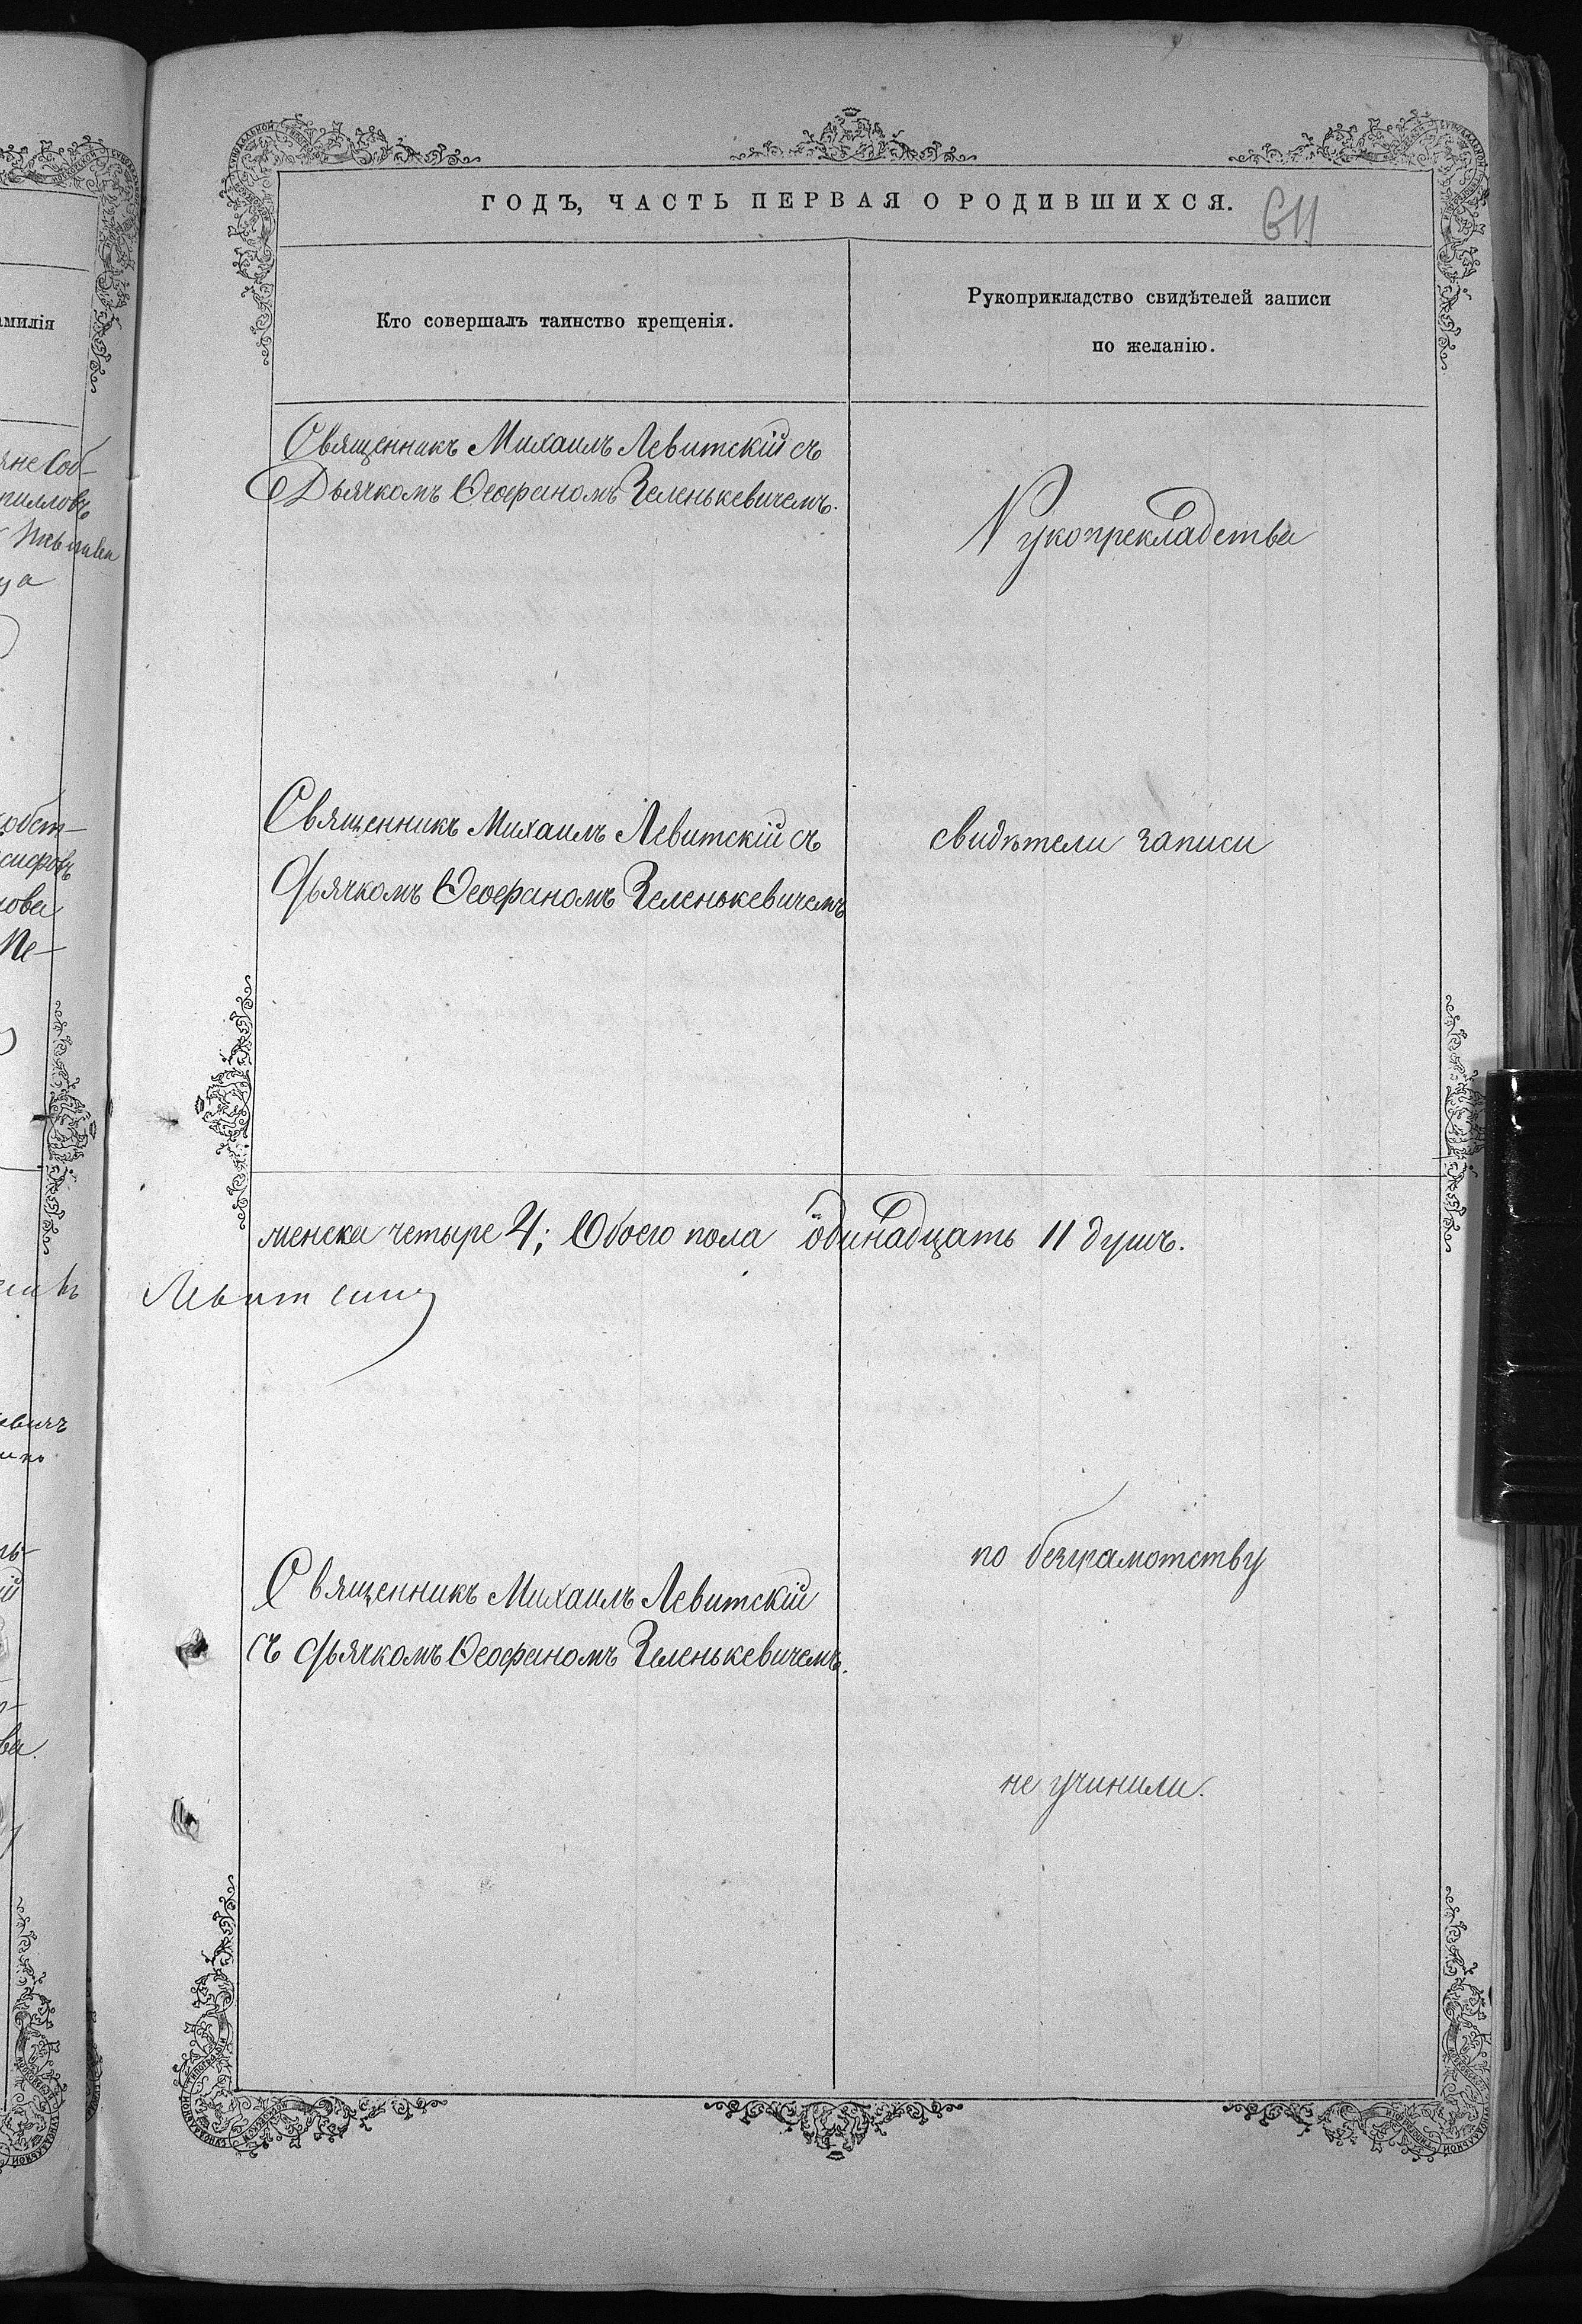 ГОДЪ, ЧАСТЬ ПЕРВАЯ О РОДИВШИХСЯ.
611
амилія
Кто совершалъ таинство крещенія.
Рукоприкладство свидѣтелей записи
по желанію.
Священникъ Михаилъ Левитскій съ
Дьячкомъ Ѳеофаномъ Зеленькевичемъ.
Рукопрекладства
Священникъ Михаилъ Левитскій съ
Дьячкомъ Ѳеофаномъ Зеленькевичемъ
свидѣтели записи
менска четыре 4; Обоего пола одинадцать 11 душъ.
Левитскій
по безграмотству
Священникъ Михаилъ Левитскій
съ Дьячкомъ Ѳеофаномъ Зеленькевичемъ.
не учинили.